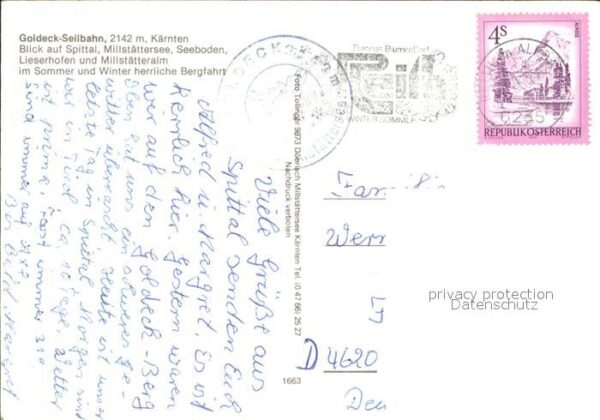 Goldeck-Seilbahn, 2142 m, Kärnten
Blick auf Spittal, Millstättersee, Seeboden,
Lieserhofen und Millstätteralm
im Sommer und Winter herrliche Bergfahrt
Europas Blumendorf
WINTER SOMMER
4S
REPUBLIK ÖSTERREICH
Foto Tollinger 9873 Döbriach Millstättersee Kärnten Tel. (0 47 66) 25 27
Nachdruck verboten
1663
Viele Grüße aus
Spittal senden Euch
Alfred u. Margret. Es ist
herrlich hier gestern waren
wir auf den Goldeck-Berg
Dort hat uns ein schweres Ge-
witter überrascht Heute ist unser
letzte Tag in Spittal Morgen sind
wir in Tirol ca. 10 Tage, Wetter
ist prima, Fast immer 30°
sind immer auf
Bis bald Margret
Familie
Wer
D 4620
privacy protection
Datenschutz